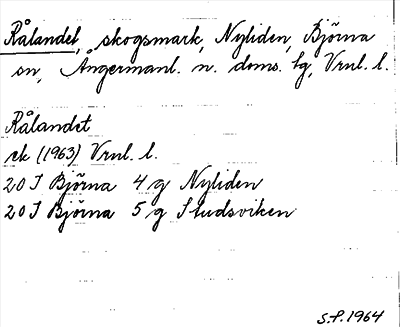 Rålandet, skogsmark, Nyliden, Björna
sn, Ångermanl. n. doms. lg, Vrnl. l.
Rålandet
ek (1963) Vrnl. l.
20 I Björna 4 g Nyliden
20 I Björna 5 g Studsviken
S.P. 1964